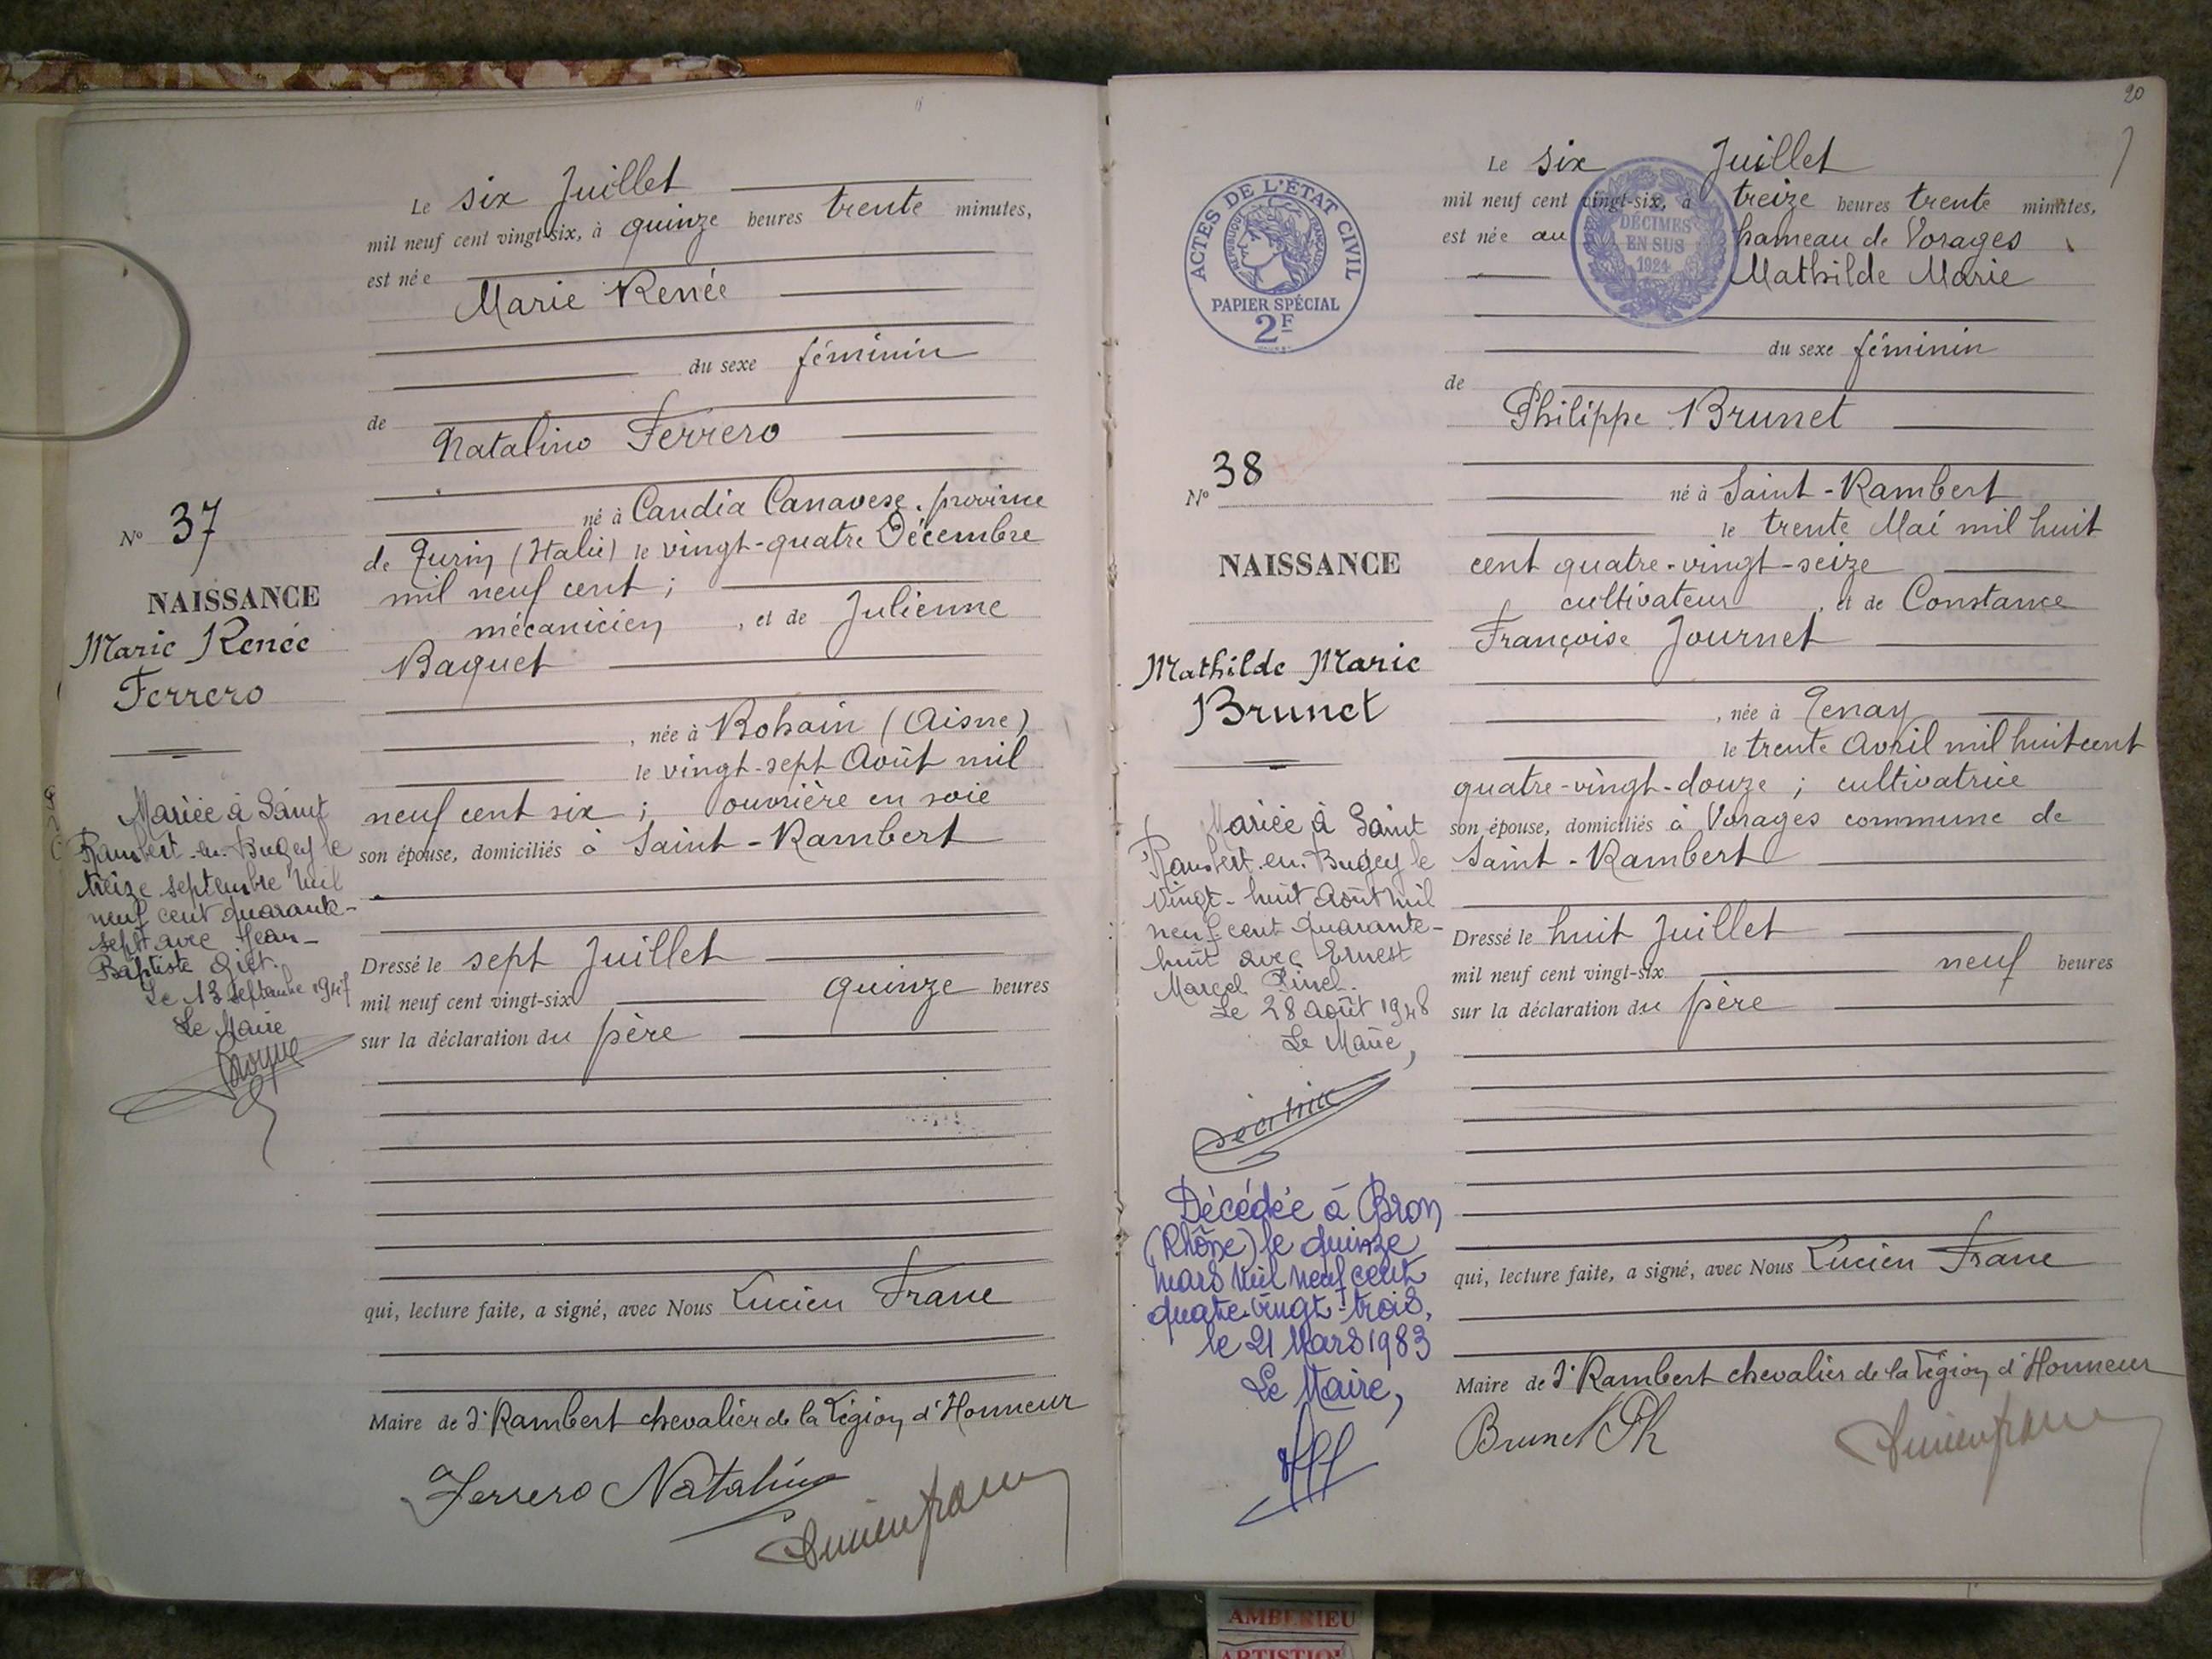 Le six Juillet
mil neuf cent vingt-six, à quinze heures trente minutes,
est née
Marie Renée
du sexe féminin
de
Natalino Ferrero
né à Candia Canavese, province
de Turin (Italie) le vingt-quatre Décembre
mil neuf cent ;
mécanicien, et de Julienne
Baquet
, née à Bohain (Aisne)
le vingt-sept Août mil
neuf cent six ; ouvrière en soie
son épouse, domiciliés à Saint-Rambert
Dressé le sept Juillet
mil neuf cent vingt-six quinze heures
sur la déclaration du père
qui, lecture faite, a signé, avec Nous Lucien Franc
Maire de St Rambert chevalier de la Légion d'Honneur
Ferrero Natalino
Lucien franc
N° 37
NAISSANCE
Marie Renée
Ferrero
Mariée à Saint
Rambert-en-Bugey le
treize septembre mil
neuf cent quarante-
sept avec Jean-
Baptiste
Le 13 septembre 1947
Le Maire
20
Le six Juillet
mil neuf cent vingt-six, à treize heures trente minutes,
est née au hameau de Vorages
Mathilde Marie
du sexe féminin
de
Philippe Brunet
né à Saint-Rambert
le trente Mai mil huit
cent quatre-vingt-seize
cultivateur, et de Constance
Françoise Journet
, née à Tenay
le trente Avril mil huit cent
quatre-vingt-douze ; cultivatrice
son épouse, domiciliés à Vorages commune de
Saint-Rambert
Dressé le huit Juillet
mil neuf cent vingt-six neuf heures
sur la déclaration du père
qui, lecture faite, a signé, avec Nous Lucien Franc
Maire de St Rambert chevalier de la Légion d'Honneur
Brunet Ph
Lucien franc
ACTES DE L'ÉTAT CIVIL
RÉPUBLIQUE FRANÇAISE
PAPIER SPÉCIAL
2F
DÉCIMES
EN SUS
1924
N° 38
NAISSANCE
Mathilde Marie
Brunet
Mariée à Saint
Rambert-en-Bugey le
vingt-huit août mil
neuf cent quarante-
huit avec Ernest
Marcel Pinel.
Le 28 août 1948
Le Maire,
Décédée à Bron
(Rhône) le quinze
mars mil neuf cent
quatre-vingt-trois,
le 21 Mars 1983
Le Maire,
AMBERIEU
ARTISTIQU